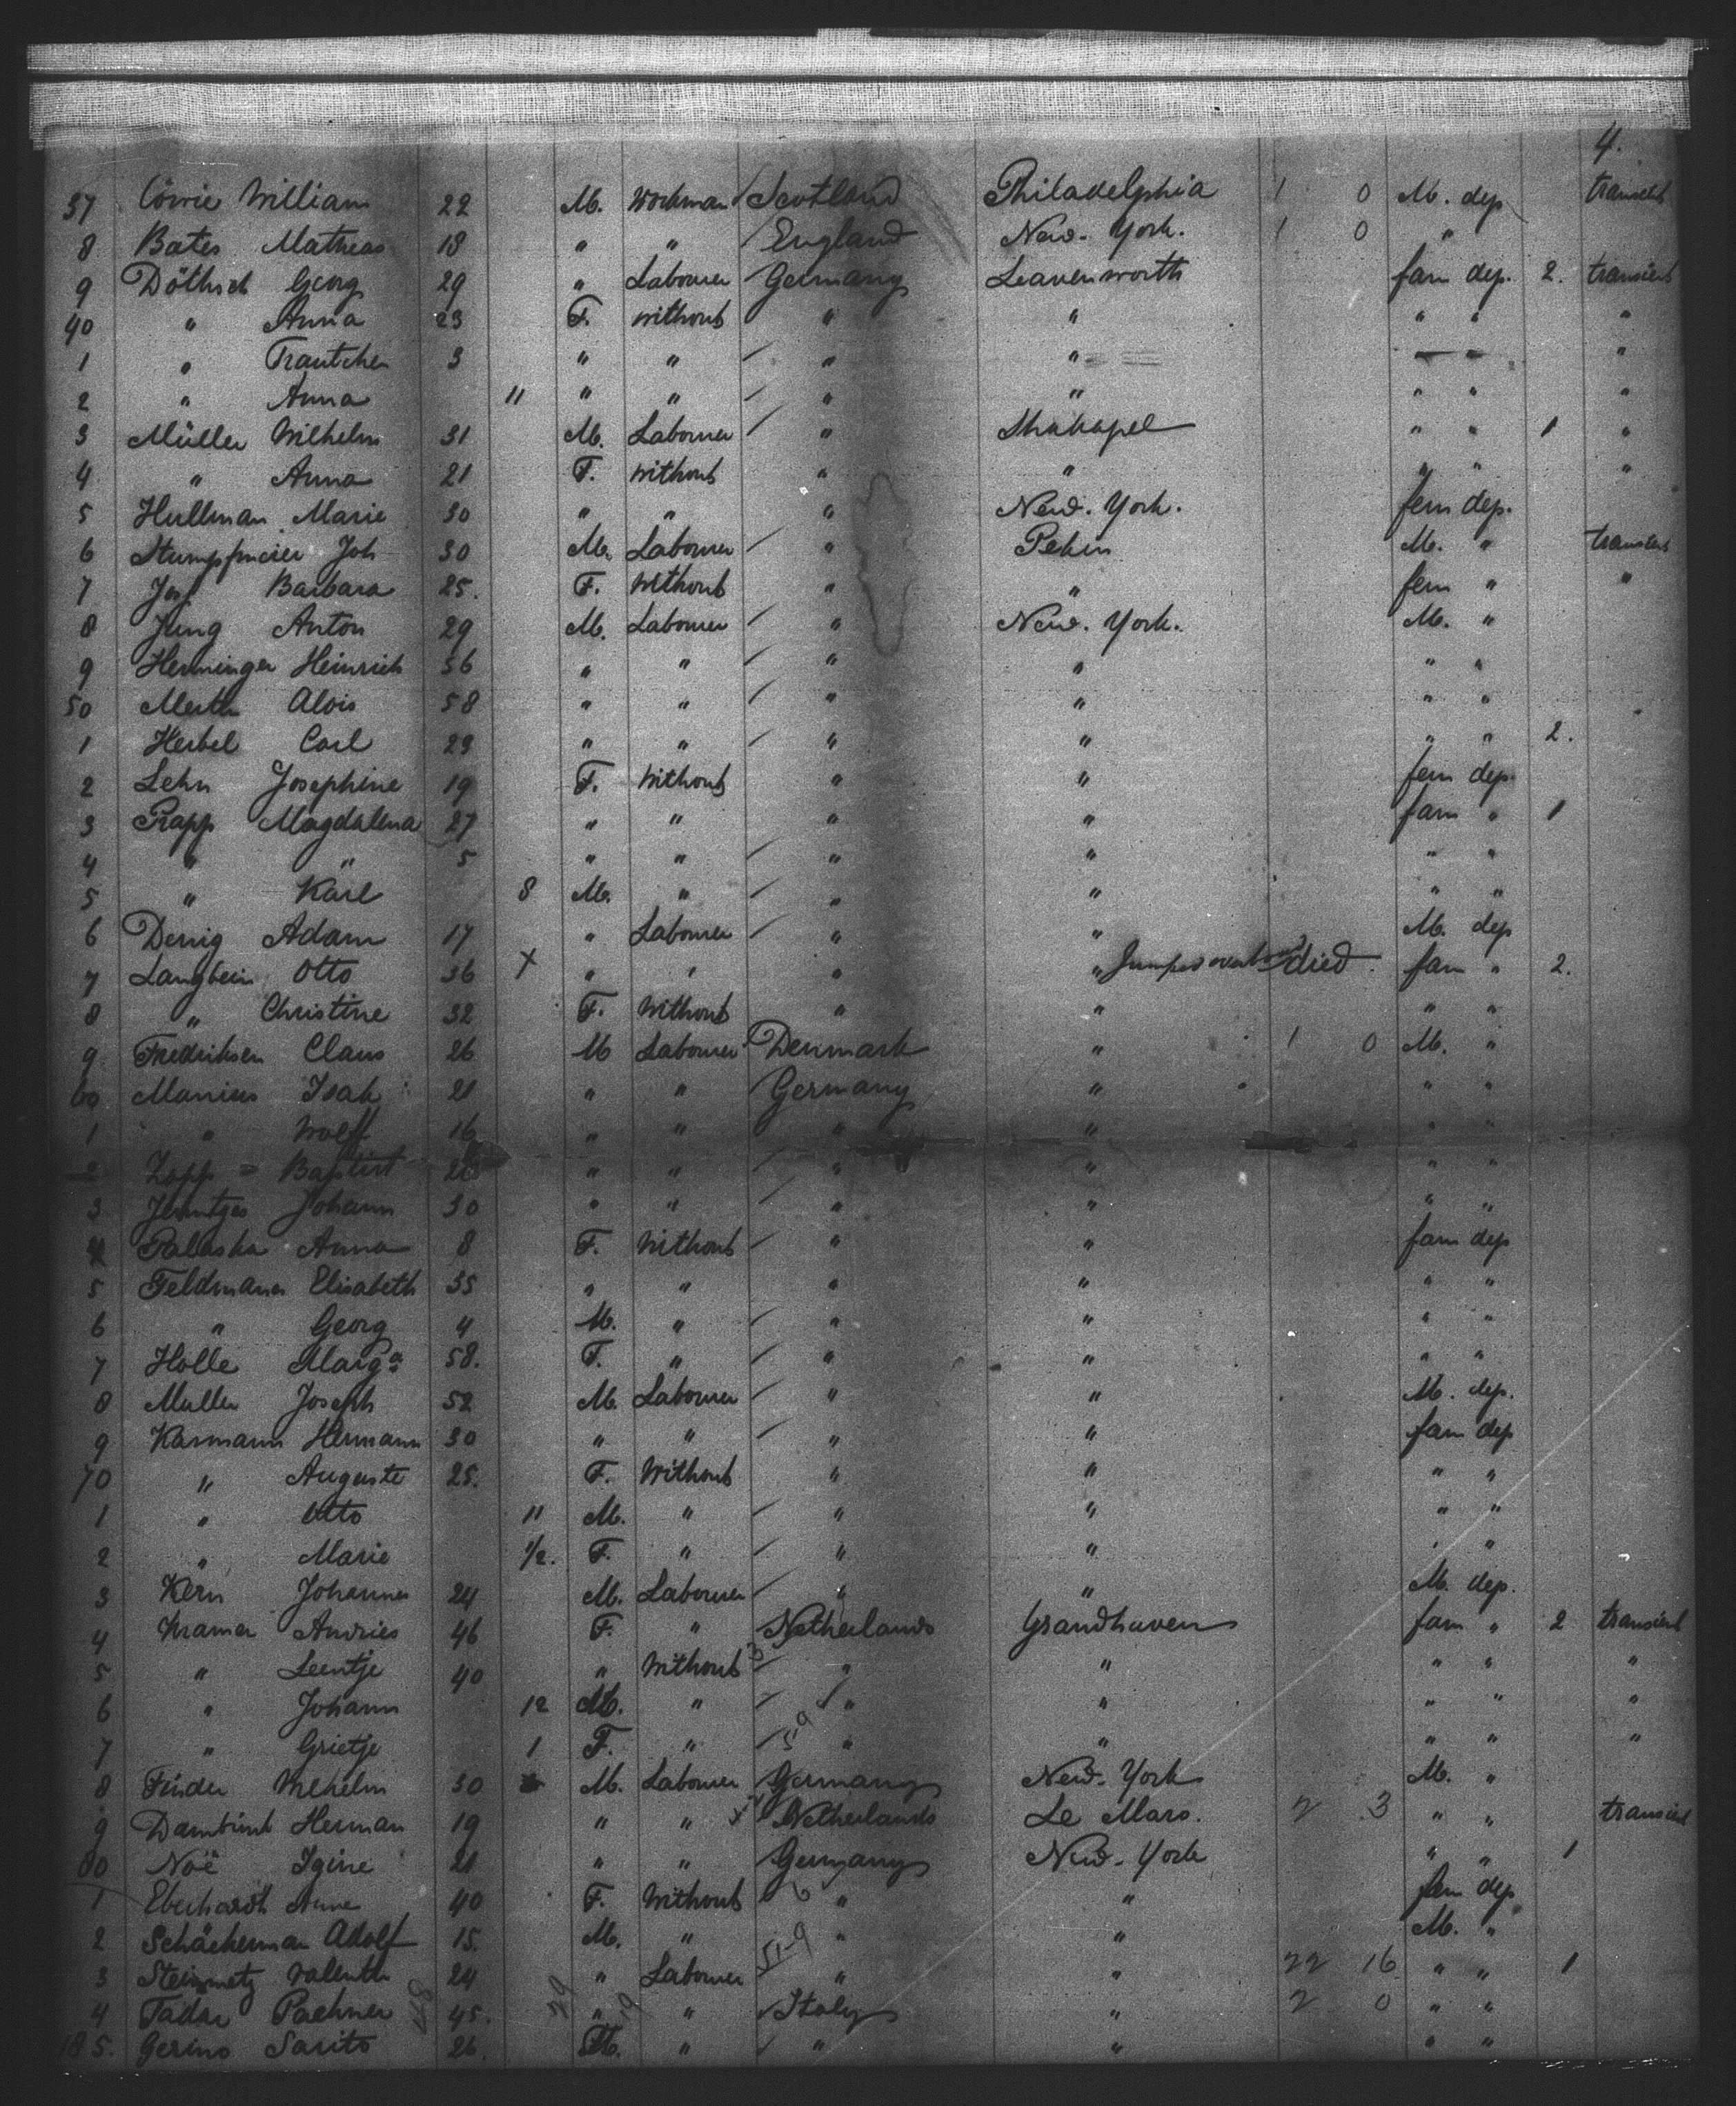 4.
37 William 22 M. Workman Scotland Philadelphia 1 0 M. dep transient
8 Bates Matheas 18 " " England New. York. 1 0 "
9 Döthsch Georg 29 " Labourer Germany Leavenworth fam dep. 2. transient
40 " Anna 23 F. without " " " " "
1 " Trautchen 3 " " " " " " "
2 " Anna 11 " " " " " " "
3 Müller Wilhelm 31 M. Labourer " " " 1 "
4 " Anna 21 F. without " " " " "
5 Hullman Marie 30 " " " New. York. fem dep.
6 Stumpfmeier Joh 30 M. Labourer " Pekin M. " transient
7 Barbara 25. F. Without " " fem " "
8 Jung Anton 29 M. Labourer " New. York. M. "
9 Herminger Heinrich 56 " " " " " "
50 Merth Alois 58 " " " " " "
1 Herbel Carl 23 " " " " " " 2.
2 Lehn Josephine 19 F. Without " " fem dep.
3 Magdalena 27 " " " " fam " 1
4 " " 5 " " " " " "
5 " Karl 8 M. " " " " "
6 Denig Adam 17 " Labourer " " M. dep
7 Langbein Otto 36 X " " " " Jumped overboard died. fam " 2.
8 " Christine 32 F. Without " " " "
9 Fredriksen Claus 26 M Labourer Denmark " 1 0 M. "
60 Isak 21 " " Germany " " "
1 " Wolff 16 " " " " " "
2 Zapp = Baptist " " " " " "
3 Johann 30 " " " " " "
4 Palaska Anna 8 F. Without " " fam dep
5 Feldmann Elisabeth 35 " " " " " "
6 " Georg 4 M. " " " " "
7 Holle Marga 58. F. " " " " "
8 Muller Joseph 52 M. Labourer " " M. dep.
9 Karmann Hermann 30 " " " " fam dep
70 " Auguste 25. F. Without " " " "
1 " Otto 11 M. " " " " "
2 " Marie 1/2. F. " " " " "
3 Kern Johannes 24 M. Labourer " " M. dep.
4 Kramer Andries 46 F. " Netherlands Grandhaven fam " 2 transient
5 " Leentje 40 " Without 3 " " " " "
6 " Johann 12 M. " " " " " "
7 " Grietje 1 F. " 59 " " " " "
8 Finder Wilhelm 30 M. Labourer Germany New. York M. "
9 Herman 19 " " Netherlands Le Mars. 2 3 " " transient
80 Noë Igine 21 " " Germany New. York " " 1
1 Eberhardt Anne 40 F. Without 6 " " fem dep
2 Schäckerman Adolf 15. M. " " " M. "
3 Steinmetz Valentin 24 " Labourer 51-9 " " 22 16 " " 1
4 Tadar Pachner 45. " " Italy " 2 0 " "
185. Gerino Sarito 26. M. " " " " "